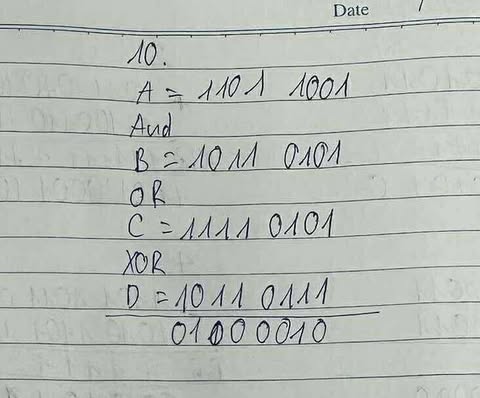 Date
10.
A = 1101 1001
And
B = 1011 0101
OR
C = 1111 0101
XOR
D = 1011 0111
0100 0010